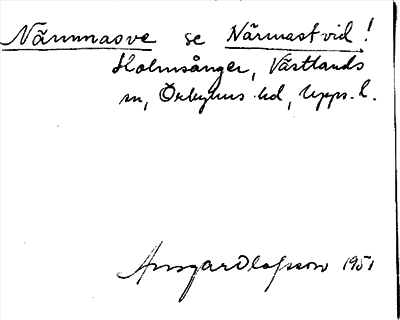 Närmnasve se Närmast vid!
Holmsånger, Västlands
sn, Örbyhus hd, Upps. l.
Ansgar Olofsson 1951